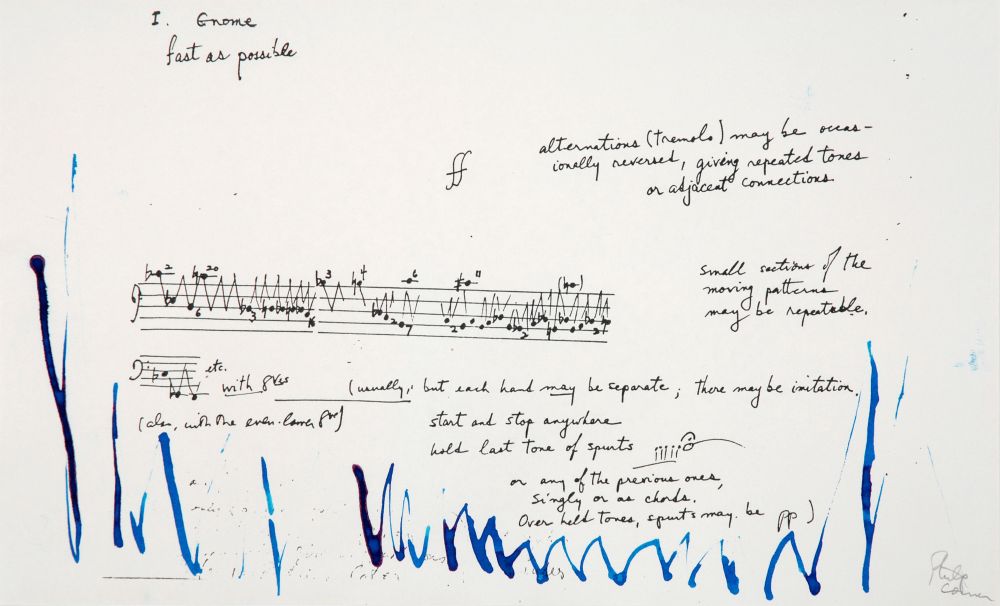 I. Gnome
fast as possible
ff
alternations (tremolo) may be occas-
ionally reversed, giving repeated tones
or adjacent connections
small sections of the
moving patterns
may be repeatable.
2 20 3 4 6 11
6 3 16 2 7 2 2
etc.
with 8ves (usually, but each hand may be separate; There may be imitation.
(also, with the even-lower 8ve)
start and stop anywhere
hold last tone of spurts
or any of the previous ones,
singly or as chords.
Over held tones, spurts may be pp)
Philip
Corner